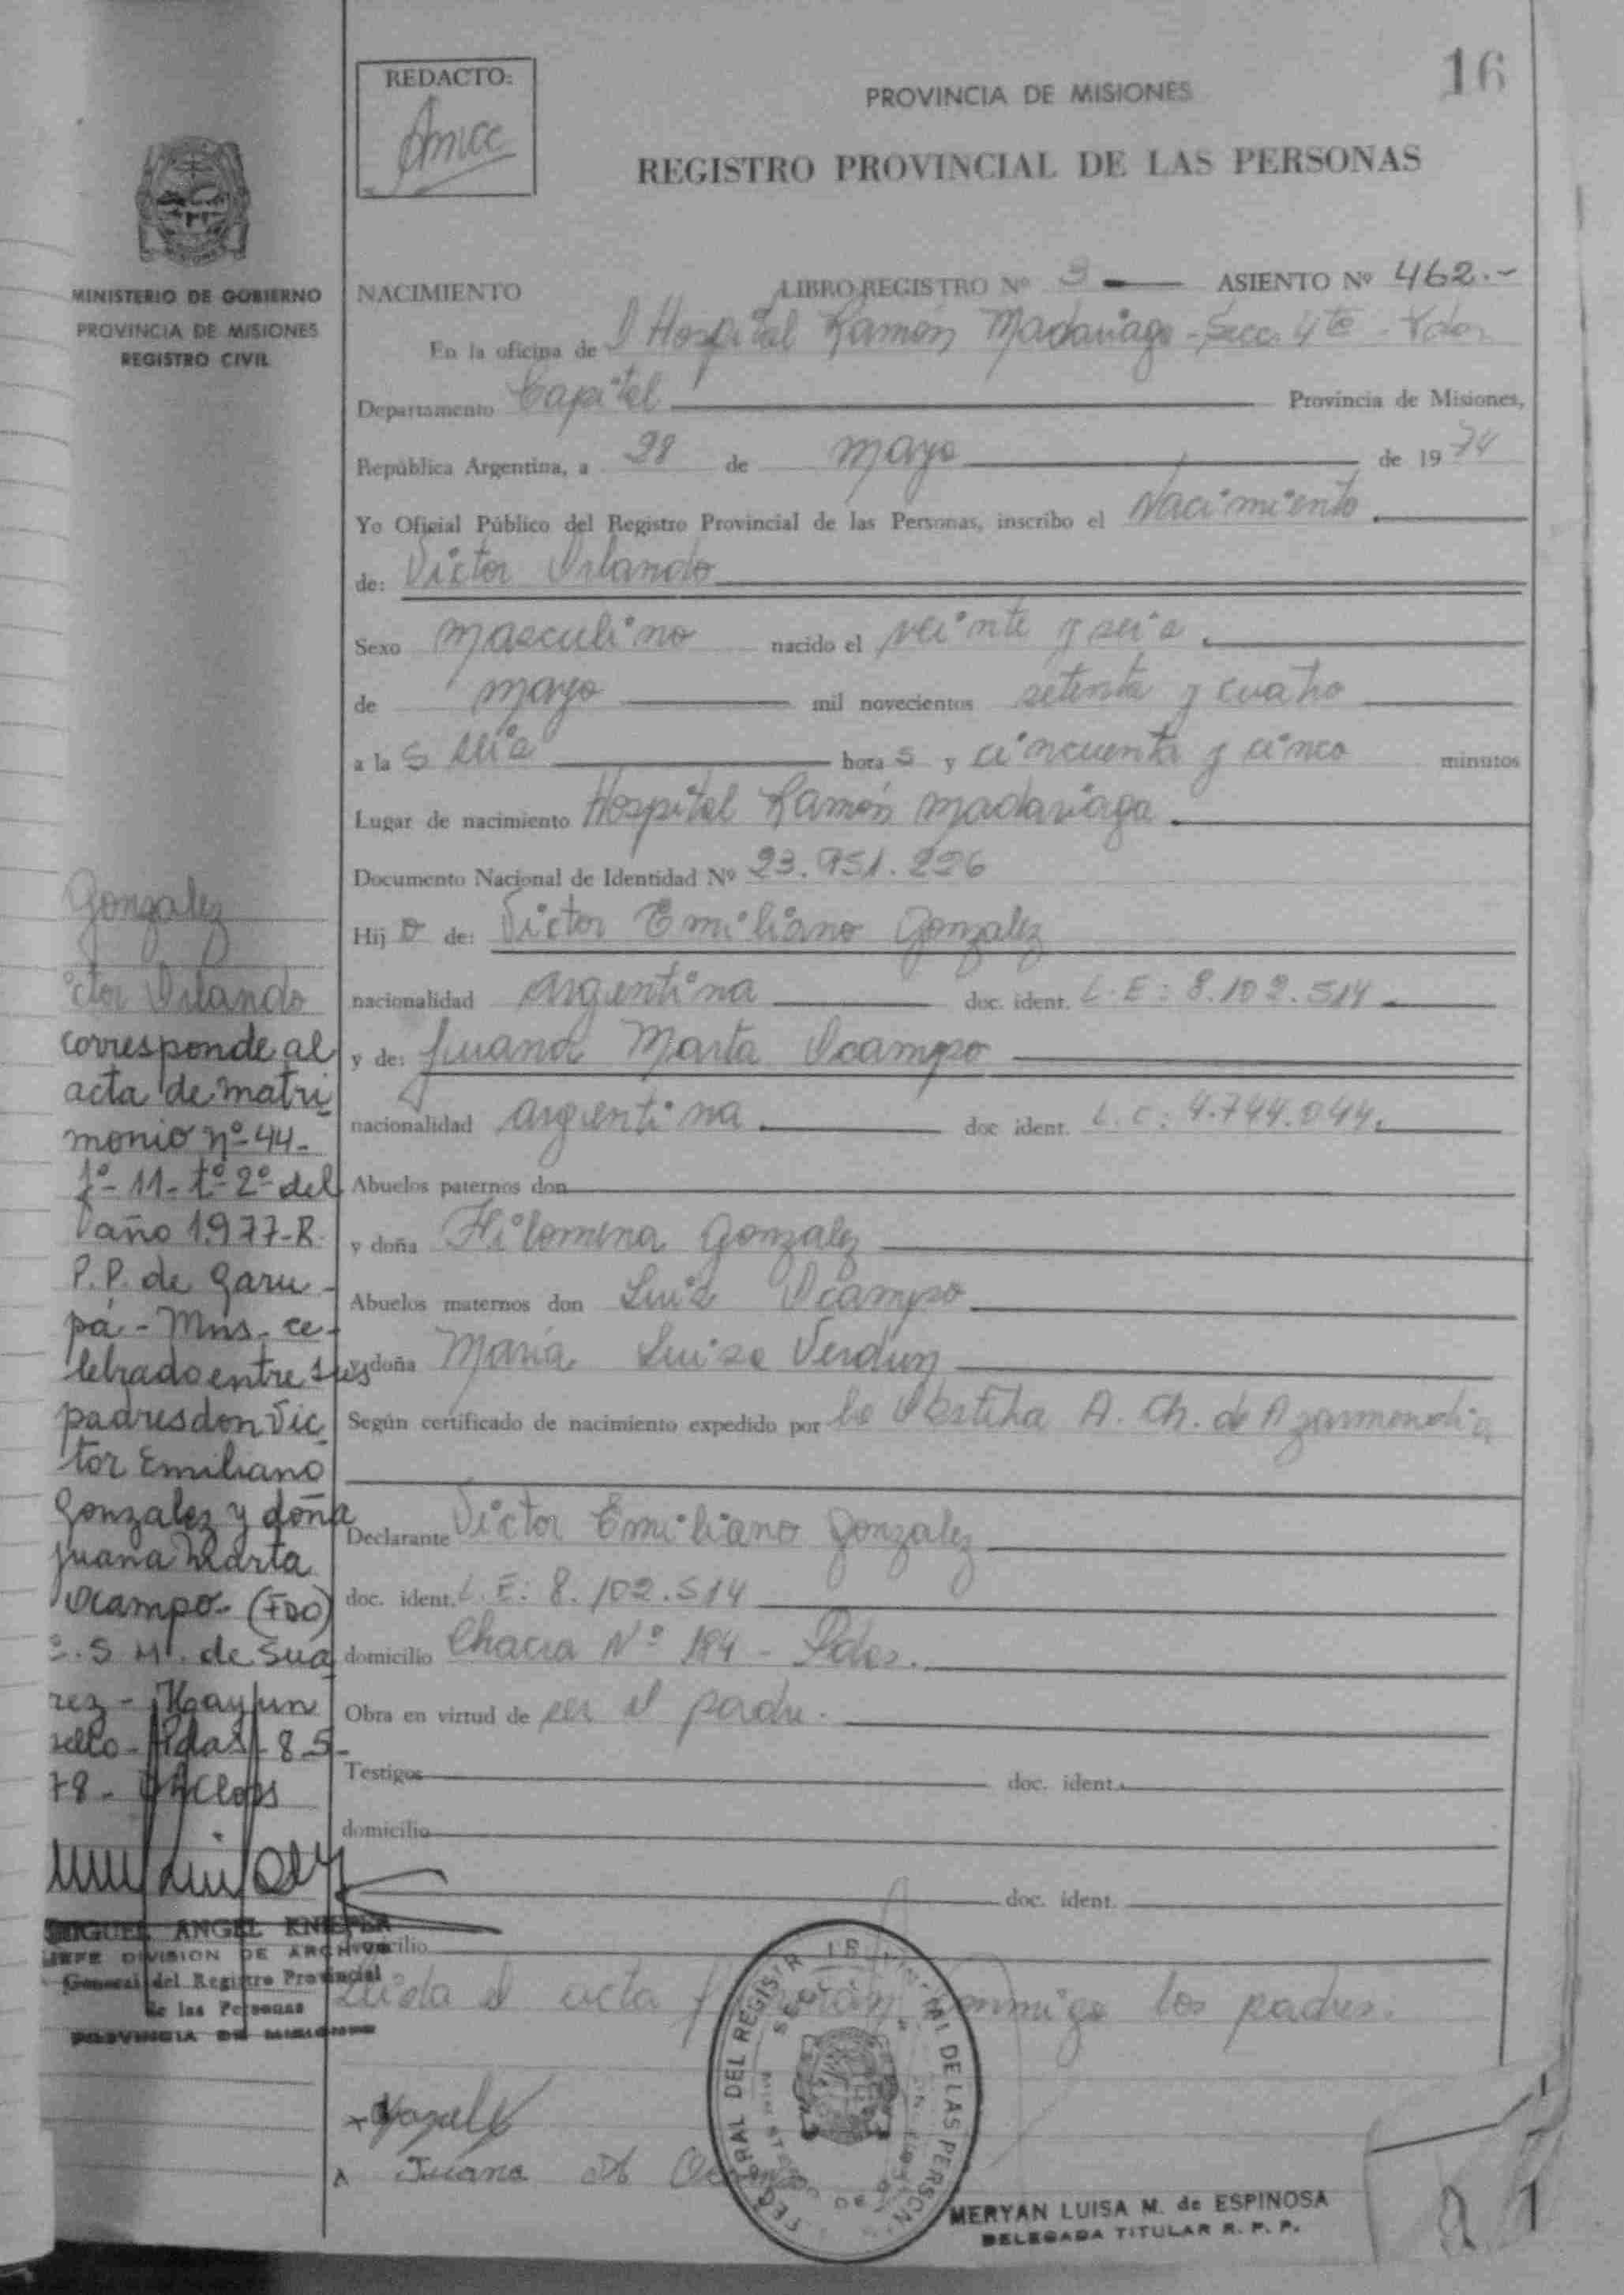 16
REDACTO:
PROVINCIA DE MISIONES
REGISTRO PROVINCIAL DE LAS PERSONAS
MINISTERIO DE GOBIERNO
PROVINCIA DE MISIONES
REGISTRO CIVIL
NACIMIENTO LIBRO REGISTRO Nº 3 ASIENTO Nº 462.-
En la oficina de l Hospital Ramón Madariaga - Secc. 4ta -
Departamento Capital Provincia de Misiones,
República Argentina, a 28 de mayo de 1974
Yo Oficial Público del Registro Provincial de las Personas, inscribo el Nacimiento
de: Victor Orlando
Sexo masculino nacido el veinte y seis
de mayo mil novecientos setenta y cuatro
a las seis horas y cincuenta y cinco minutos
Lugar de nacimiento Hospital Ramón Madariaga
Documento Nacional de Identidad Nº 23.951.226
Hijo de: Victor Emiliano Gonzalez
nacionalidad argentina doc. ident. L.E: 8.102.514
y de: Juana Marta Ocampo
nacionalidad argentina doc. ident. L.C: 4.744.044.
Abuelos paternos don
y doña Filomena Gonzalez
Abuelos maternos don Luis Ocampo
y doña María Luisa Verdun
Según certificado de nacimiento expedido por la Obstetra A. Ch. de Azarmendia
Declarante Victor Emiliano Gonzalez
doc. ident. L.E: 8.102.514
domicilio Chacra Nº 184 - Pdas.
Obra en virtud de ser el padre.
Testigos doc. ident.
domicilio
doc. ident.
domicilio
Leída el acta firman conmigo los padres.
Gonzalez
ictor Orlando
corresponde al
acta de matri
monio nº 44-
fº- 11- tº 2º del
año 1977-R.
P.P. de Garu-
pá - Mns- ce-
lebrado entre sus
padres don Vic
tor Emiliano
Gonzalez y doña
Juana Marta
Ocampo- (FDO)
S. M. de Sua
rez - Hay un
sello - Pdas - 8-5-
78-
MIGUEL ANGEL KNIEPER
JEFE DIVISION DE ARCHIVO
General del Registro Provincial
de las Personas
PROVINCIA DE MISIONES
Juana M Ocampo
MERYAN LUISA M. de ESPINOSA
DELEGADA TITULAR R. P. P.